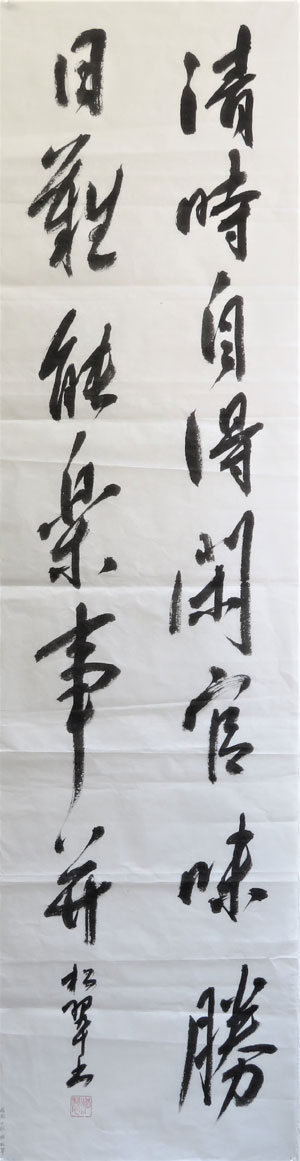 清時自得閑官味勝
日難能樂事并
松翠書